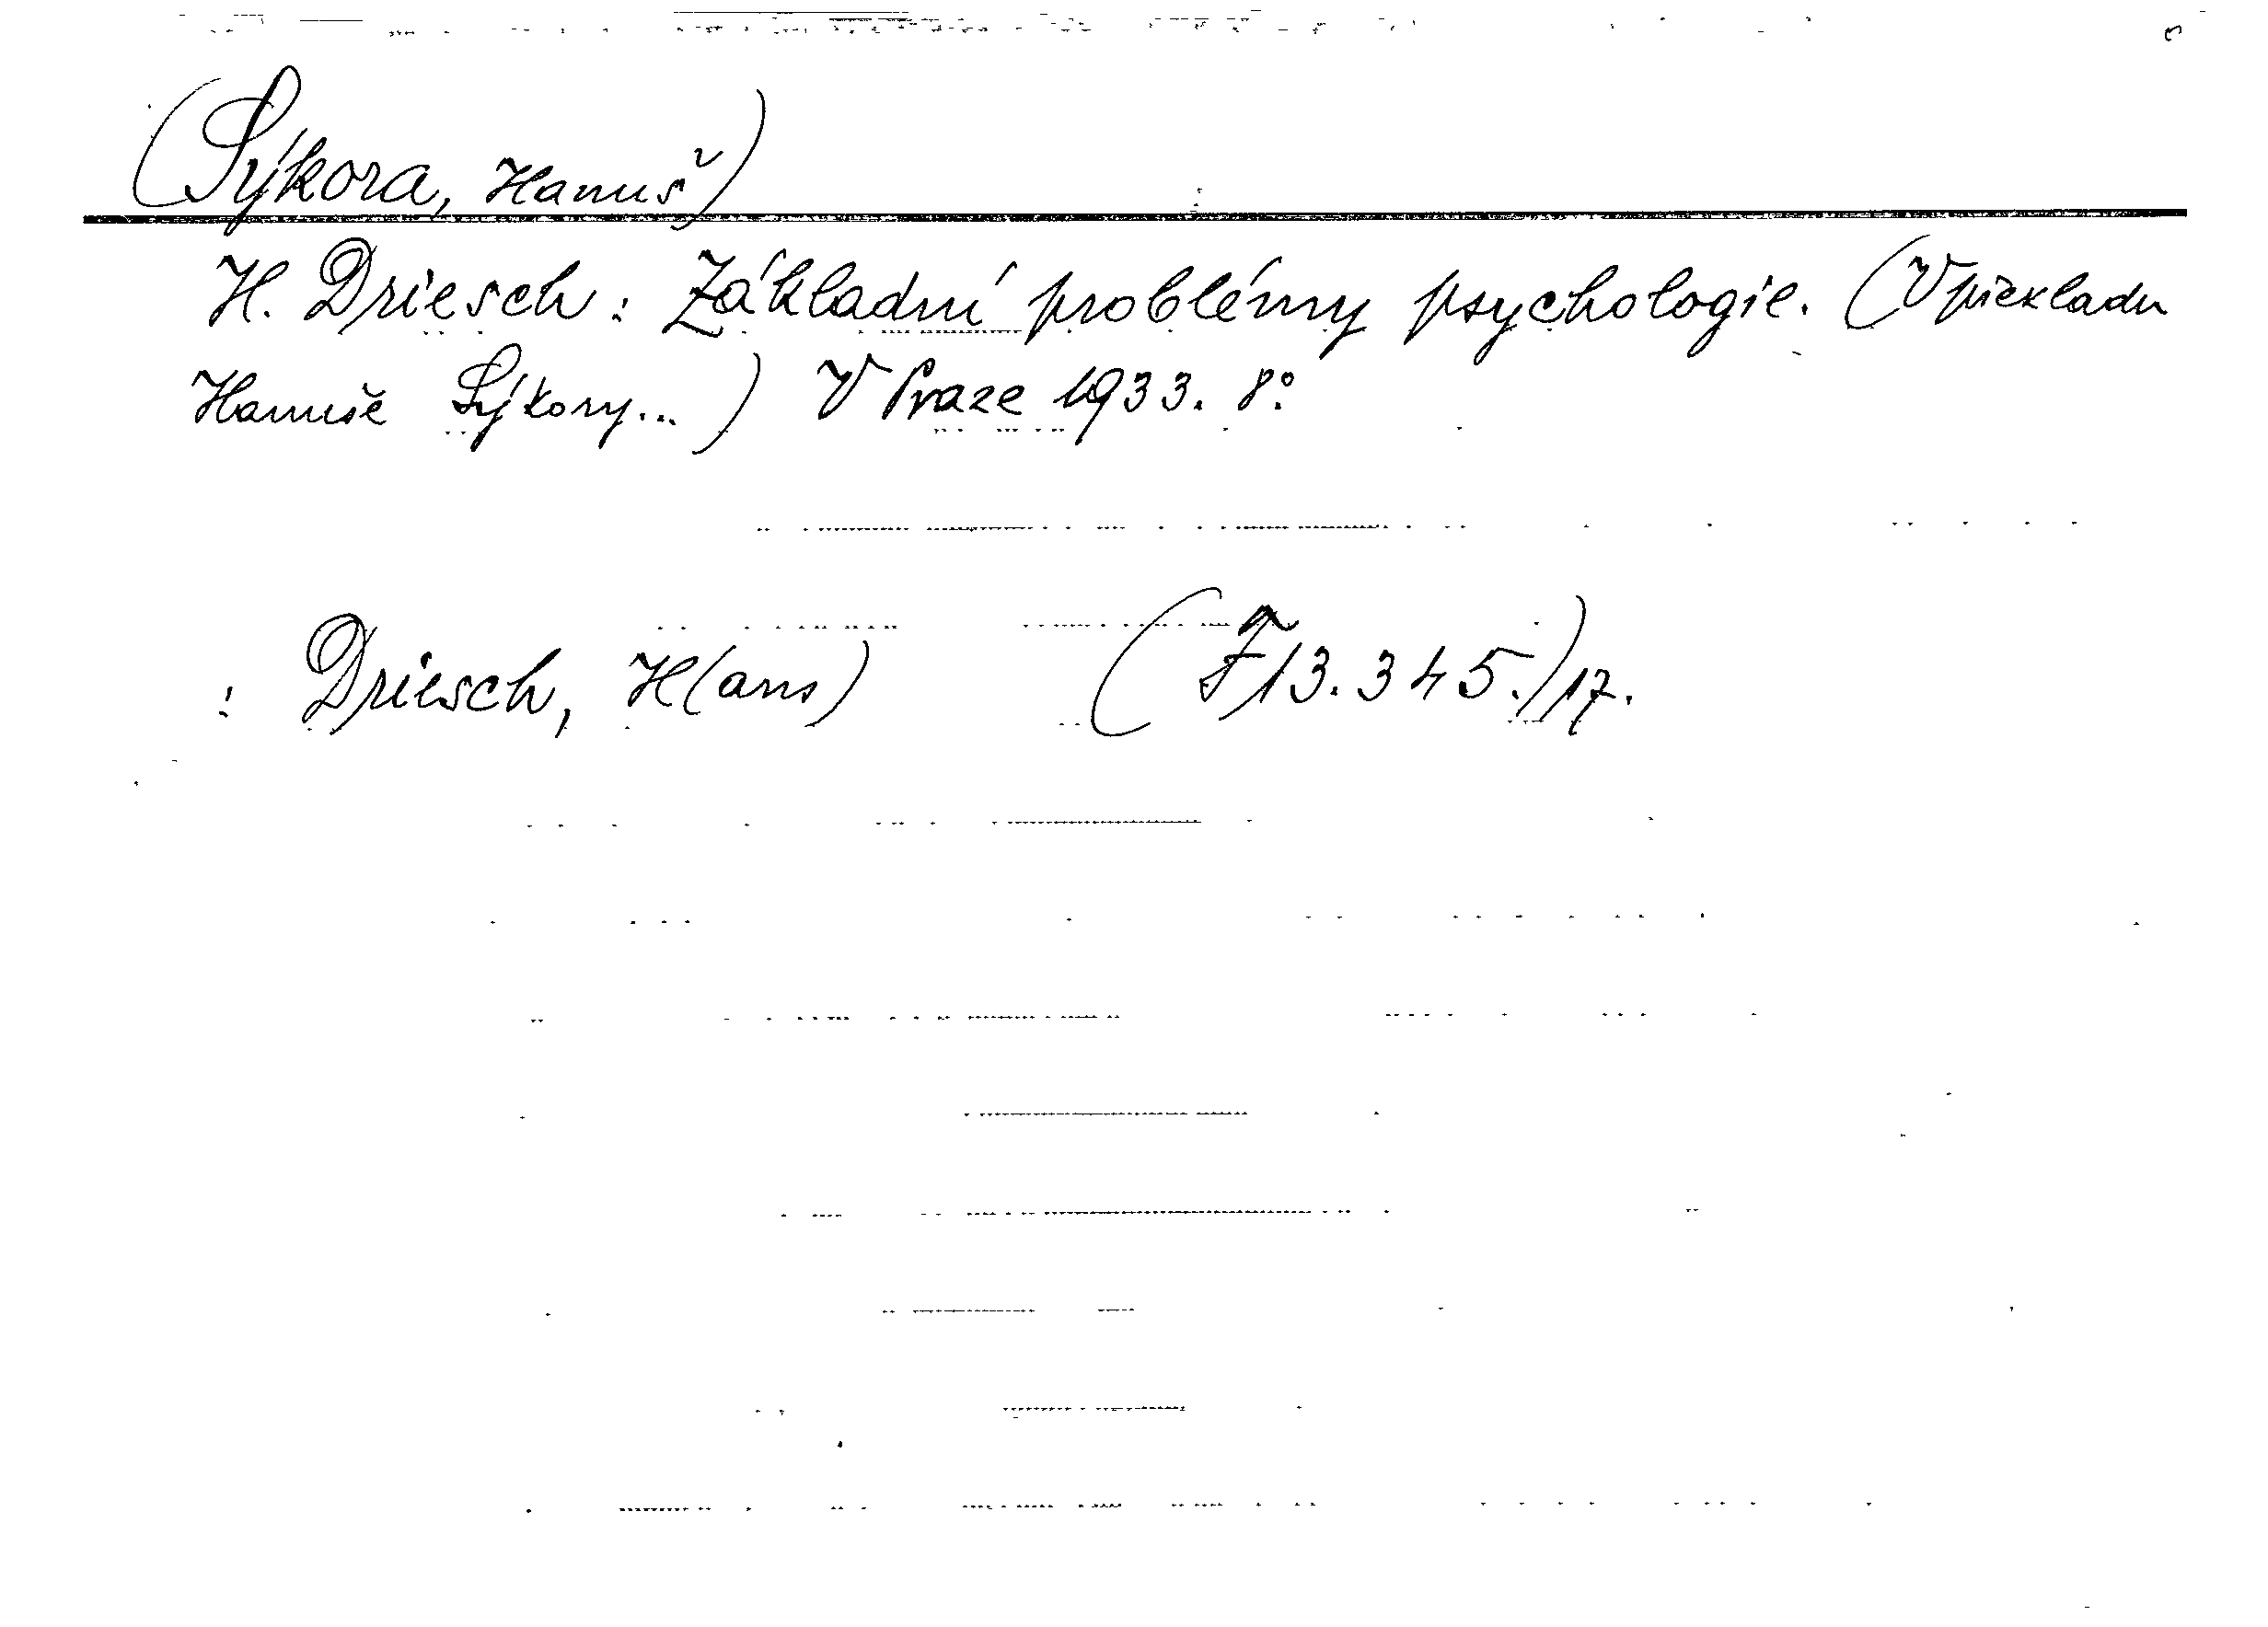 (Sýkora, Hanuš)
H. Driesch: Základní problémy psychologie. (V překladu
Hanuše Sýkory...) V Praze 1933. 8°.
: Driesch, H(ans) (F 13.345.)/17.